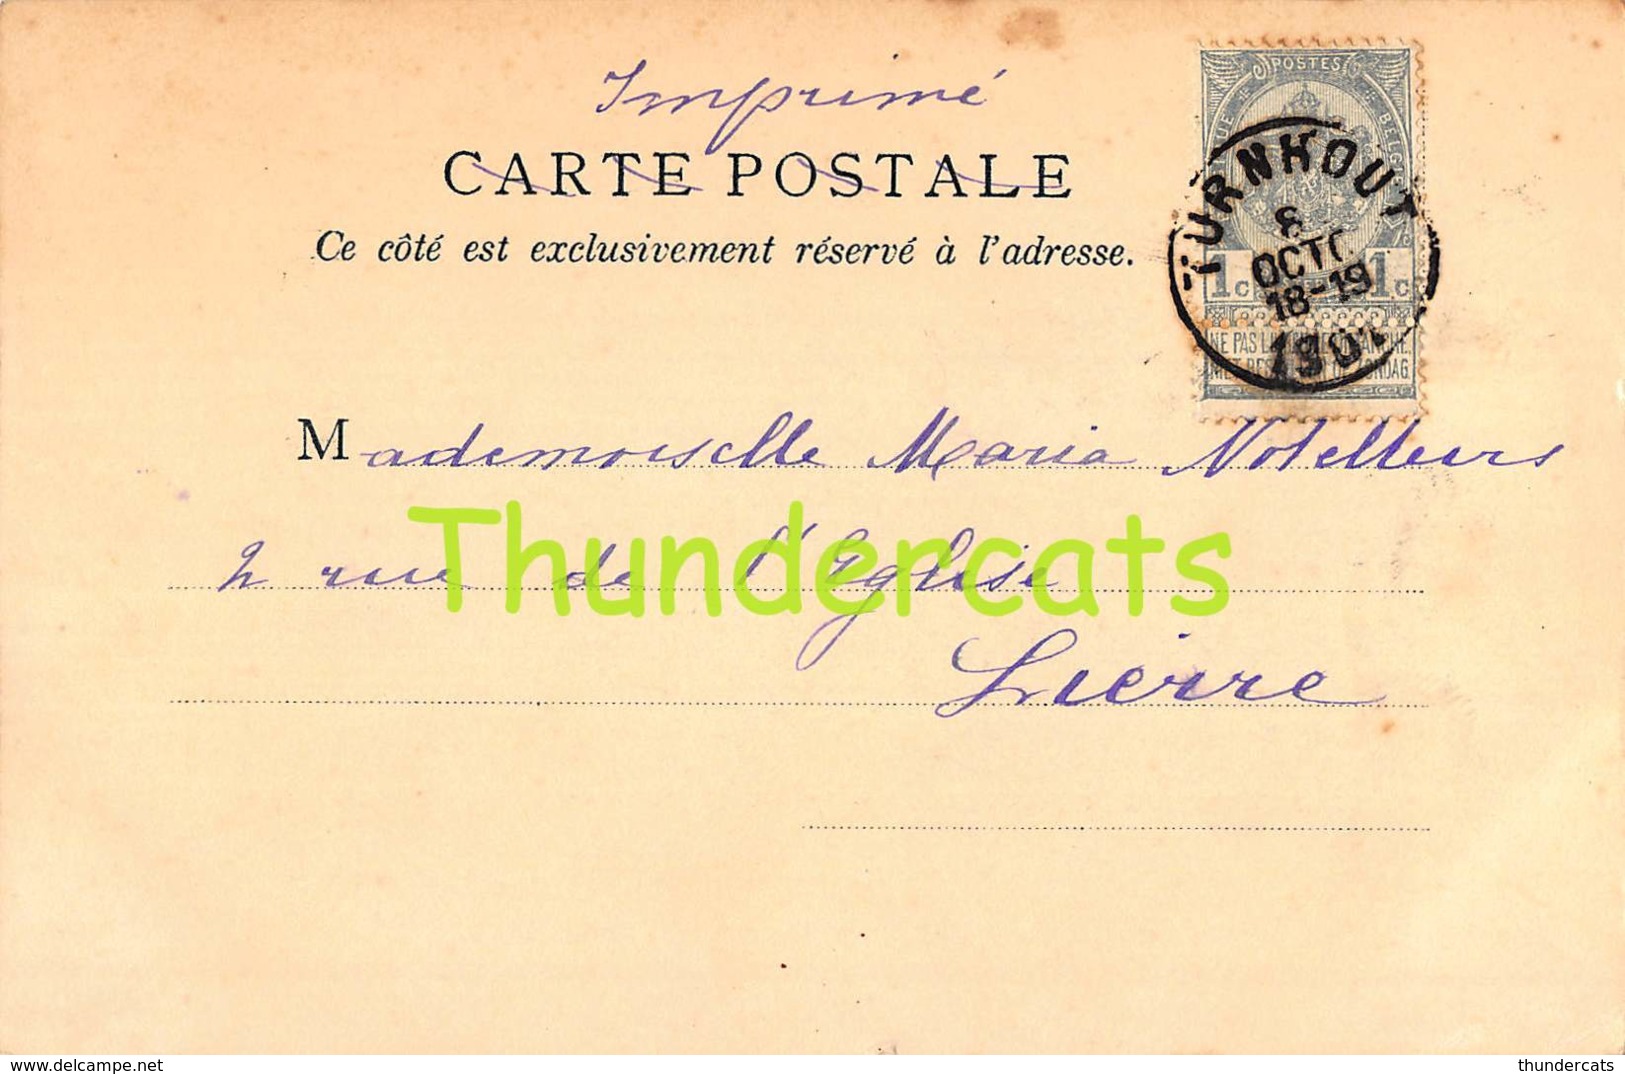 Imprimé
CARTE POSTALE
Ce côté est exclusivement réservé à l'adresse.
POSTES
BELGIQUE
TURNHOUT
8
OCTO
18-19
1901
1c 1c
NE PAS LIVRER LE DIMANCHE.
NIET BESTELLEN OP ZONDAG.
Mademoiselle Maria Notelteirs
2 rue de l'Eglise
Lierre
Thundercats
www.delcampe.net
thundercats